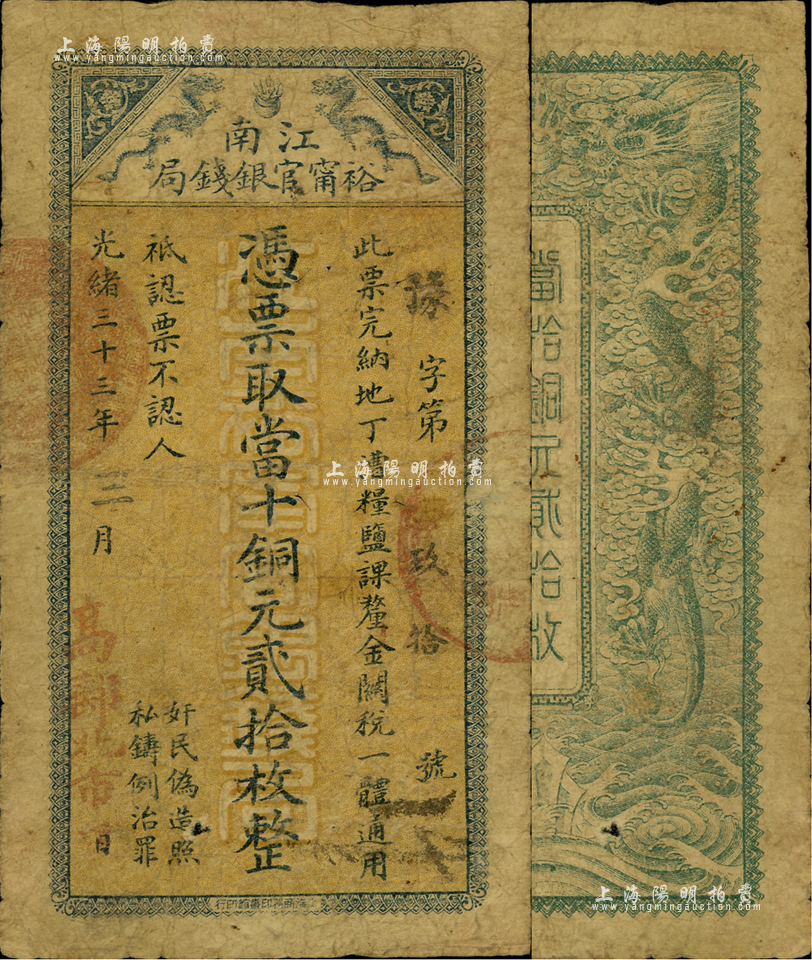 上海陽明拍賣
www.yangmingauction.com
江南
裕甯官銀錢局
豫字第 玖拾 號
此票完納地丁漕糧鹽課釐金關稅一體通用
憑票取當十銅元貳拾枚整
祇認票不認人
光緒三十三年 三月 日
奸民偽造照
私鑄例治罪
高郵北市
上海商務印書館印行
當拾銅元貳拾枚
上海陽明拍賣
www.yangmingauction.com
上海陽明拍賣
www.yangmingauction.com